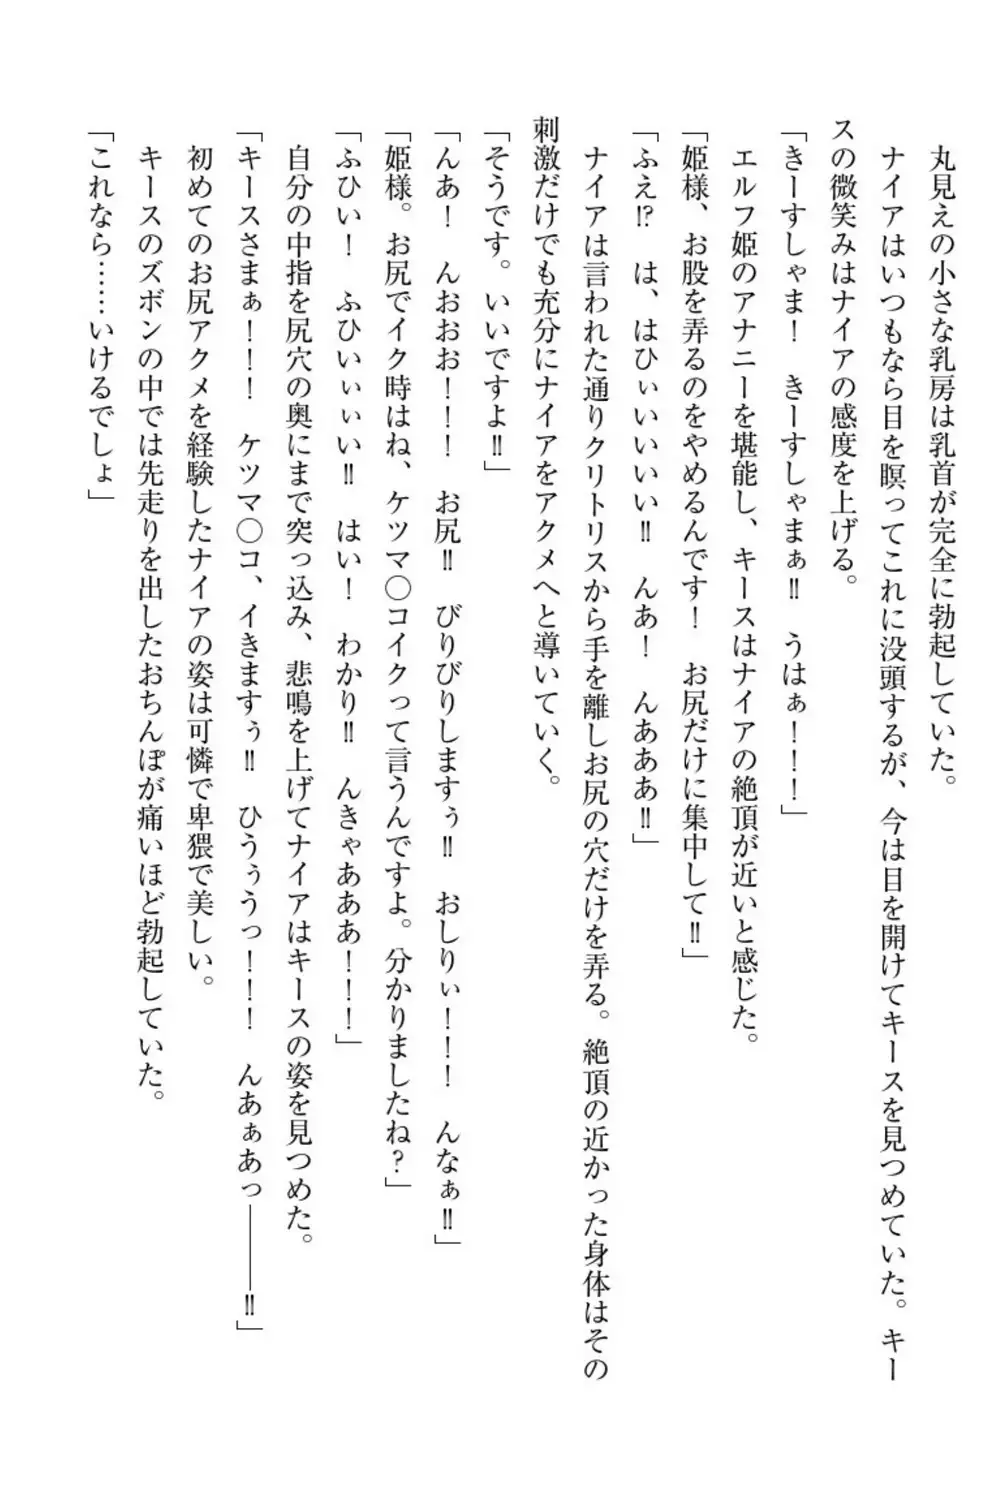 丸見えの小さな乳房は乳首が完全に勃起していた。
ナイアはいつもなら目を瞑ってこれに没頭するが、今は目を開けてキースを見つめていた。キー
スの微笑みはナイアの感度を上げる。
「きーすしゃま！　きーすしゃまぁ‼　うはぁ！！！」
エルフ姫のアナニーを堪能し、キースはナイアの絶頂が近いと感じた。
「姫様、お股を弄るのをやめるんです！　お尻だけに集中して‼」
「ふえ⁉　は、はひぃいいいい‼　んあ！　んあああ‼」
ナイアは言われた通りクリトリスから手を離しお尻の穴だけを弄る。絶頂の近かった身体はその
刺激だけでも充分にナイアをアクメへと導いていく。
「そうです。いいですよ‼」
「んあ！　んおおお！！！　お尻‼　びりびりしますぅ‼　おしりぃ！！！　んなぁ‼」
「姫様。お尻でイク時はね、ケツマ〇コイクって言うんですよ。分かりましたね？」
「ふひい！　ふひいぃぃい‼　はい！　わかり‼　んきゃあああ！！！」
自分の中指を尻穴の奥にまで突っ込み、悲鳴を上げてナイアはキースの姿を見つめた。
「キースさまぁ！！！　ケツマ〇コ、イきますぅ‼　ひうぅうっ！！！　んあぁあっ――――‼」
初めてのお尻アクメを経験したナイアの姿は可憐で卑猥で美しい。
キースのズボンの中では先走りを出したおちんぽが痛いほど勃起していた。
「これなら……いけるでしょ」